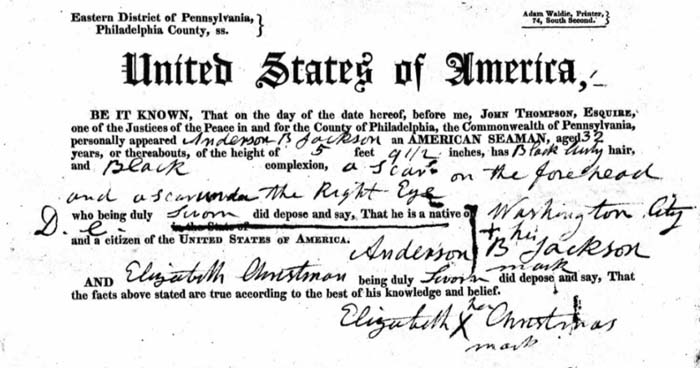 Eastern District of Pennsylvania,
Philadelphia County, ss.
Adam Waldie, Printer,
74, South Second.
United States of America,
BE IT KNOWN, That on the day of the date hereof, before me, JOHN THOMPSON, ESQUIRE,
one of the Justices of the Peace in and for the County of Philadelphia, the Commonwealth of Pennsylvania,
personally appeared Anderson B Jackson an AMERICAN SEAMAN, aged 32
years, or thereabouts, of the height of 5 feet 9 1/2 inches, has Black Curly hair,
and Black complexion, a scar on the forehead
and a scar under the Right Eye
who being duly Sworn did depose and say, That he is a native of Washington City
D. C.
in the State of
and a citizen of the UNITED STATES OF AMERICA.
his
Anderson + B Jackson
mark
AND Elizabeth Christman being duly Sworn did depose and say, That
the facts above stated are true according to the best of his knowledge and belief.
her
Elizabeth X Christmas
mark